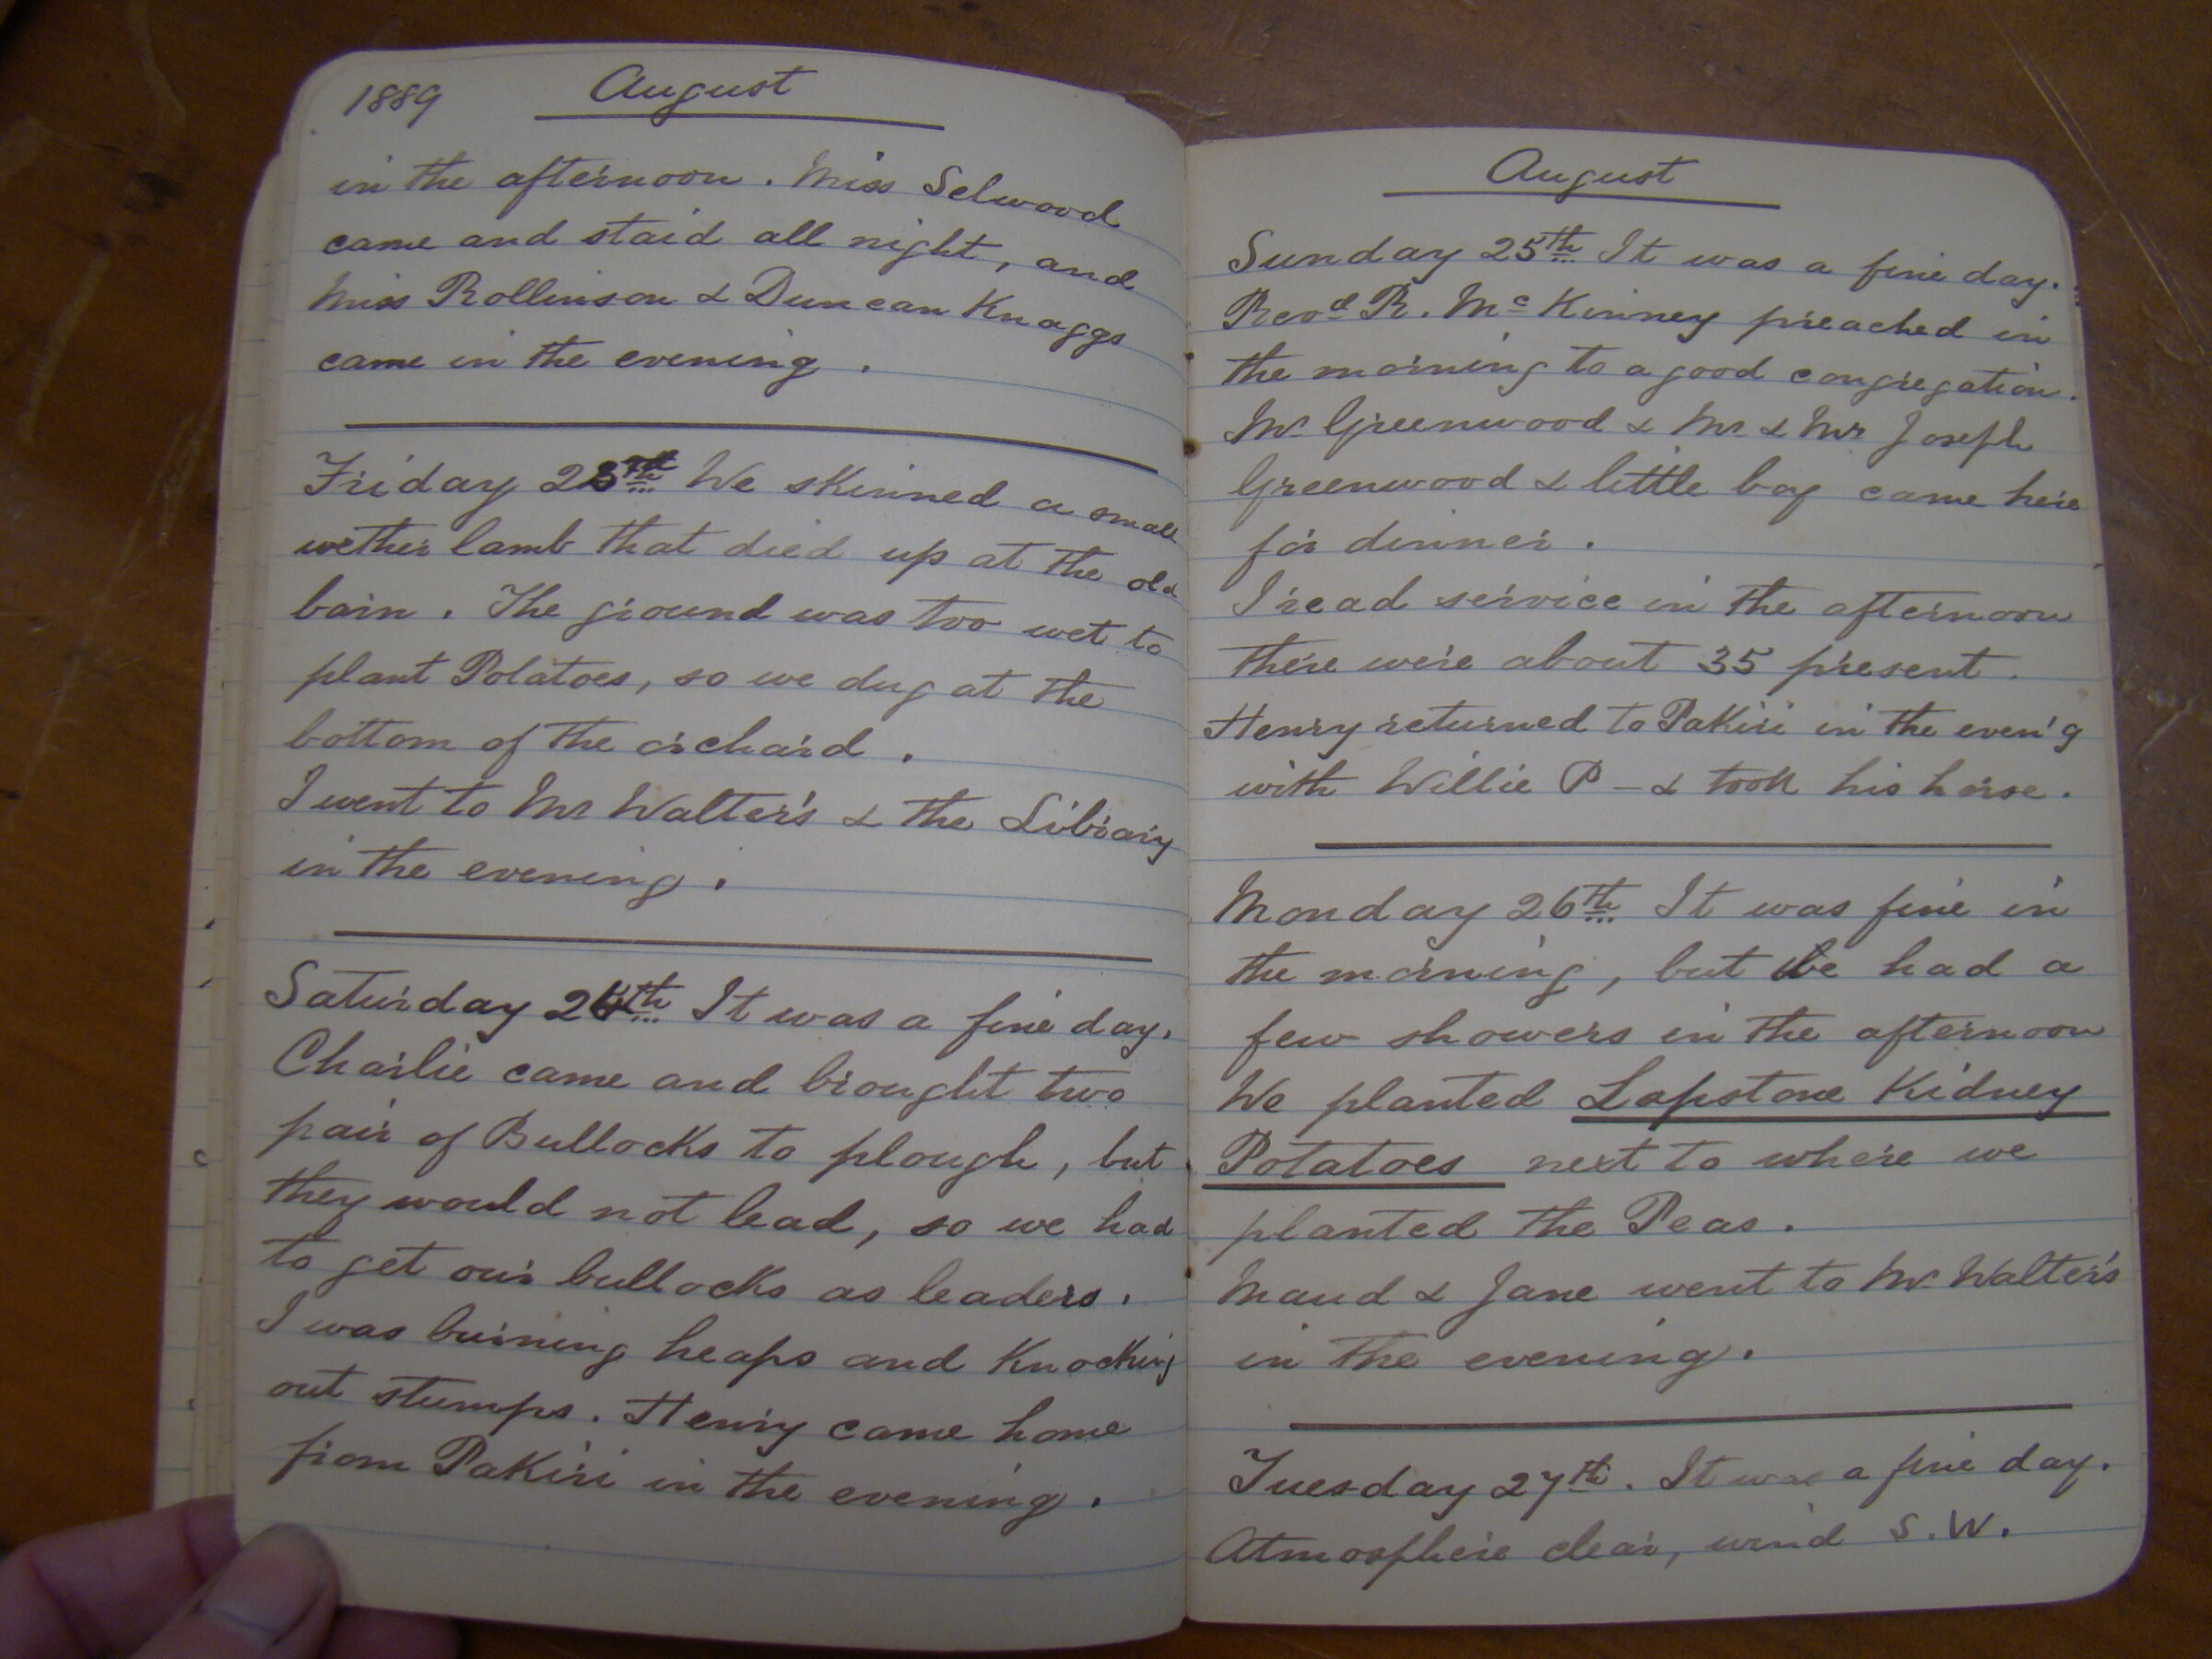 1889 August
in the afternoon. Miss Selwood
came and staid all night, and
Miss Rollinson & Duncan Knaggs
came in the evening.
Friday 23rd We skinned a small
wether lamb that died up at the old
barn. The ground was too wet to
plant Potatoes, so we dug at the
bottom of the orchard.
I went to Mr Walter's & the Library
in the evening.
Saturday 24th It was a fine day.
Charlie came and brought two
pair of Bullocks to plough, but
they would not lead, so we had
to get our bullocks as leaders.
I was burning heaps and Knocking
out stumps. Henry came home
from Pakiri in the evening.
August
Sunday 25th It was a fine day.
Revd R. McKinney preached in
the morning to a good congregation.
Mr Greenwood & Mr & Mrs Joseph
Greenwood & little boy came here
for dinner.
I read service in the afternoon
there were about 35 present.
Henry returned to Pakiri in the even'g
with Willie P - & took his horse.
Monday 26th It was fine in
the morning, but we had a
few showers in the afternoon
We planted Lapstone Kidney
Potatoes next to where we
planted the Peas.
Maud & Jane went to Mr Walter's
in the evening.
Tuesday 27th. It was a fine day.
Atmosphere clear, wind S.W.